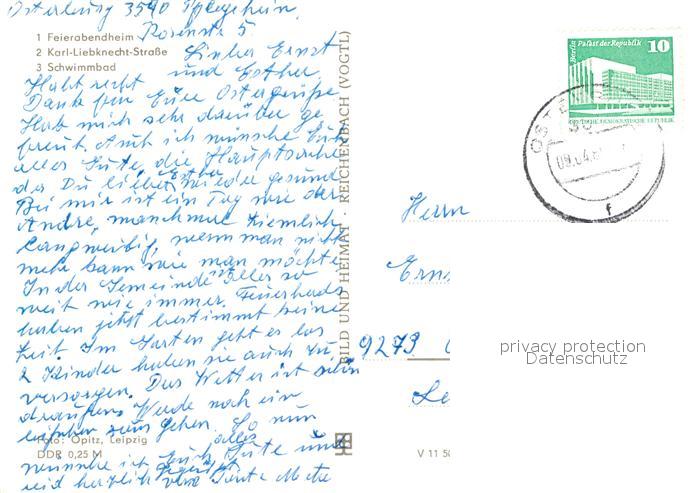 Osterburg 3540 Pflegeheim
Rosenstr 5.
1 Feierabendheim
2 Karl-Liebknecht-Straße
3 Schwimmbad
Lieber Ernst
und Esther
Habt recht
Dank für Eure Ostergrüße
Hab mich sehr darüber ge
freut. Auch ich wünsche Euch
alles Gute, die Hauptsache
das Du liebe Esther wieder gesund
Bei mir ist ein Tag wie der
Andre, manchmal ziemlich
langweilig, wenn man nicht
mehr kann wie man möchte
In der Gemeinde ist alles so
weit wie immer.
haben jetzt bestimmt keine
Zeit. Im Garten geht es los
2 Kinder haben sie auch zu
versorgen. Das Wetter ist schön
draußen. Werde noch ein
bißchen raus gehen. So nun
wünsche ich Euch alles Gute und
seid herzlich gegrüßt von Tante Meta
Foto: Opitz, Leipzig
DDR 0,25 M
BILD UND HEIMAT · REICHENBACH (VOGTL)
V 11 50
Berlin Palast der Republik
10
DEUTSCHE DEMOKRATISCHE REPUBLIK
f
Herrn
Ern
9273
Le
privacy protection
Datenschutz